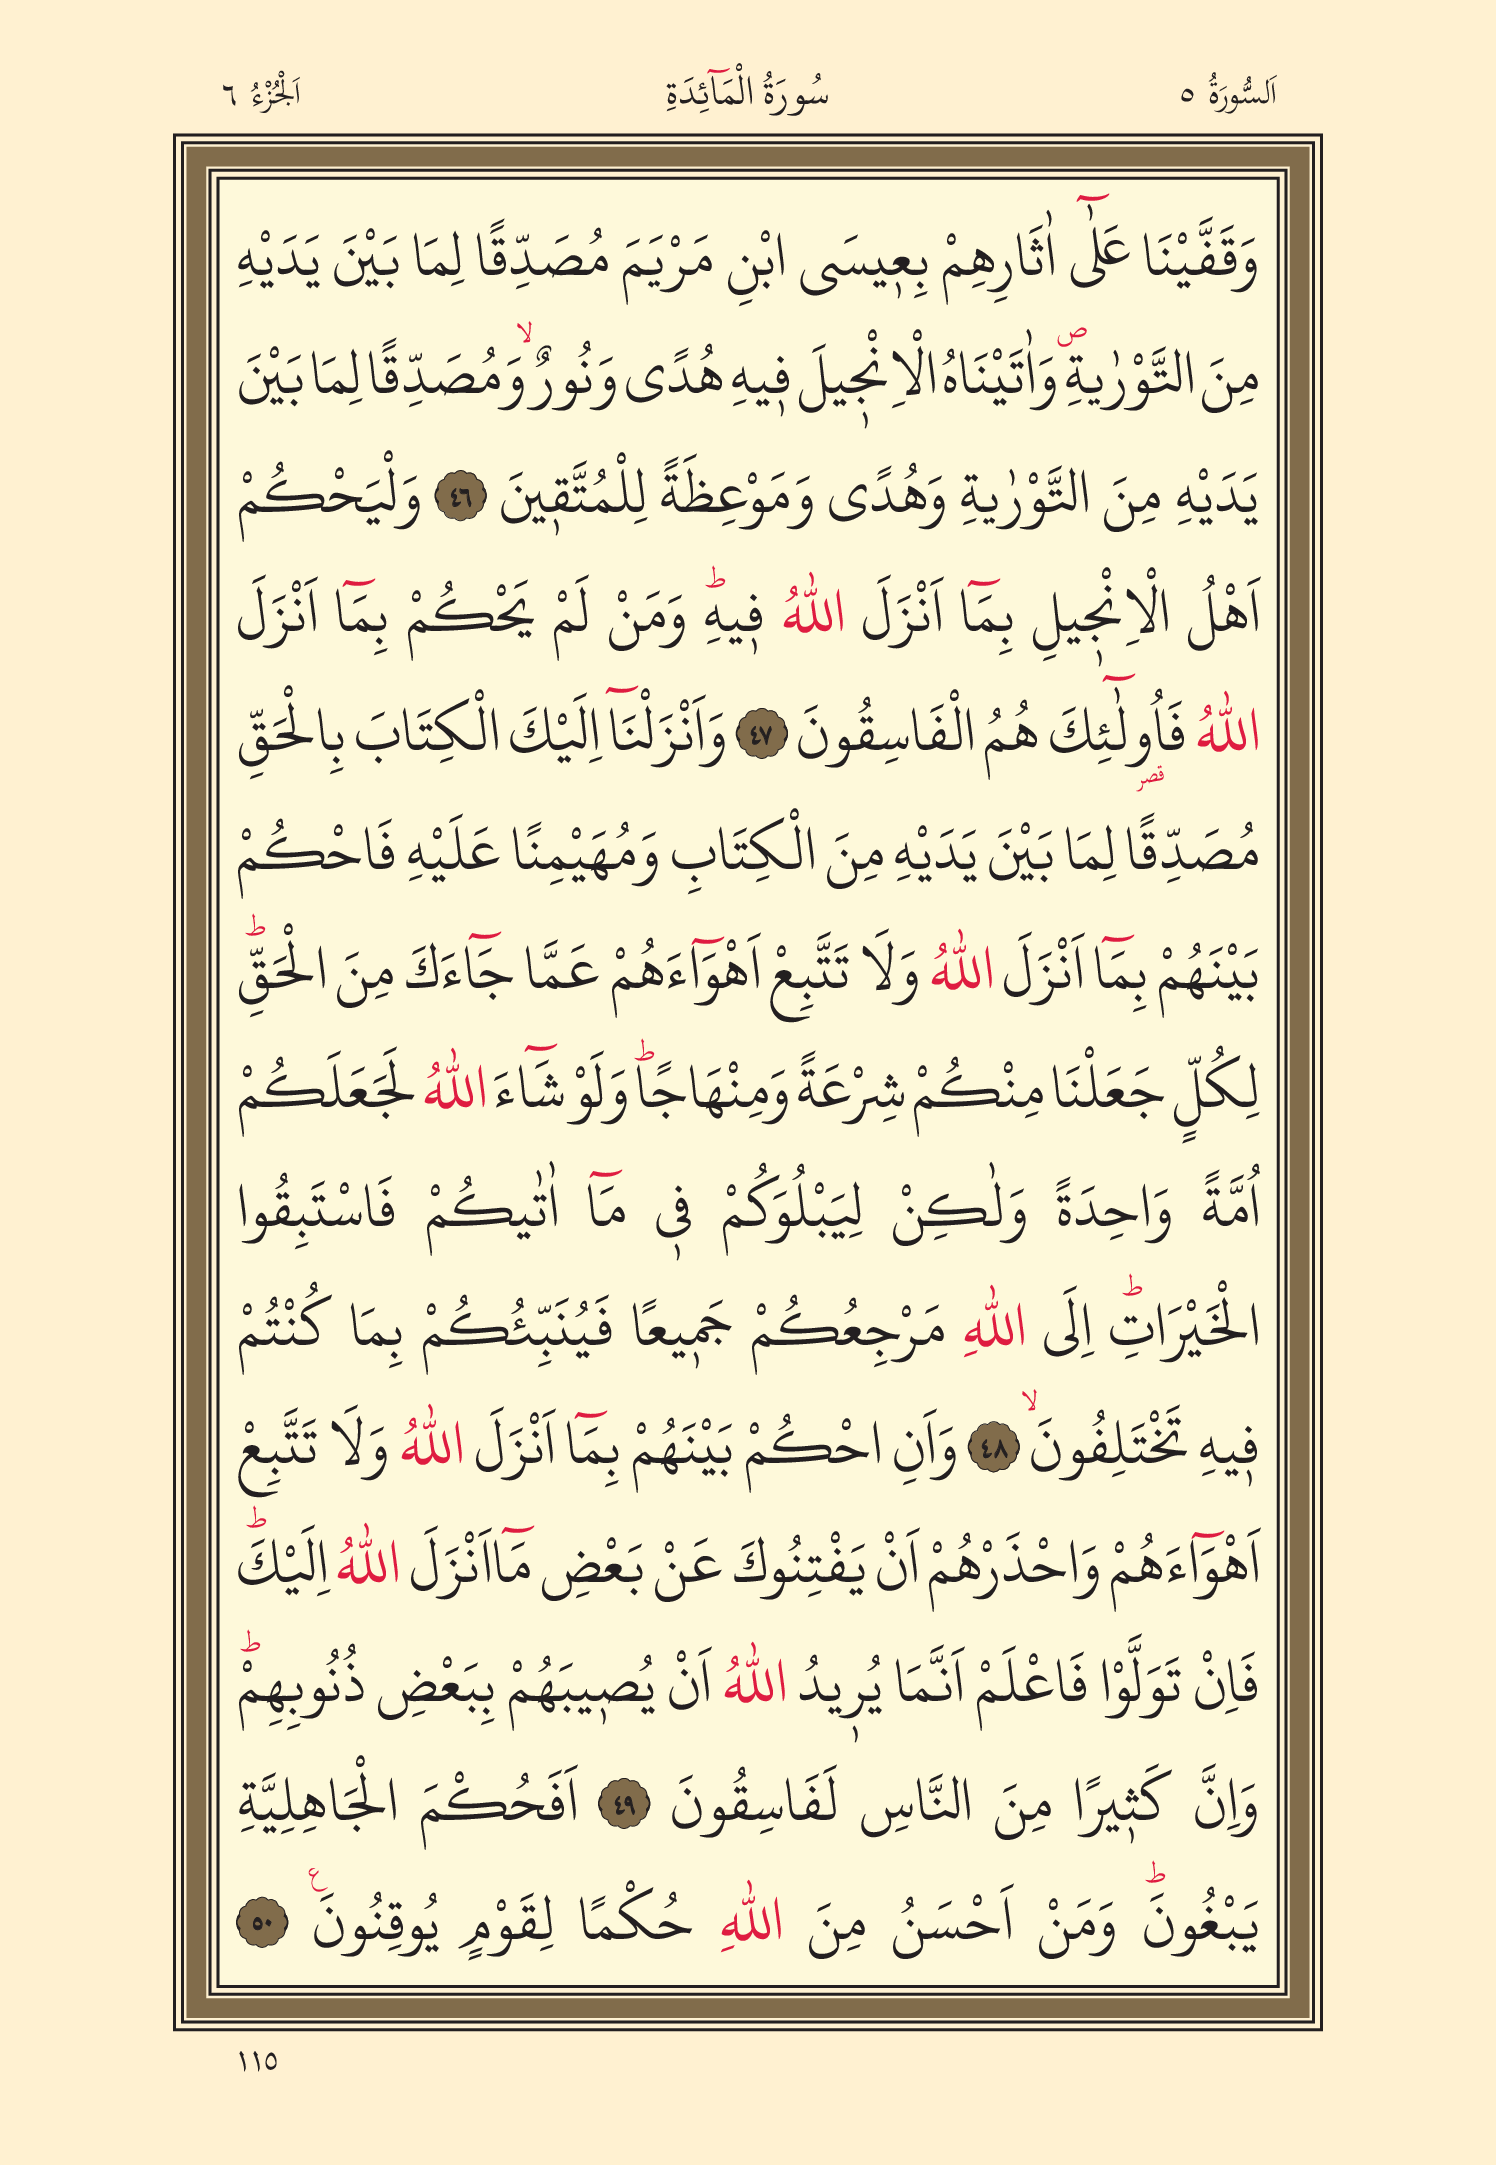 اَلسُّورَةُ ٥ سُورَةُ الْمَآئِدَةِ اَلْجُزْءُ ٦
وَقَفَّيْنَا عَلٰٓى اٰثَارِهِمْ بِع۪يسَى ابْنِ مَرْيَمَ مُصَدِّقًا لِمَا بَيْنَ يَدَيْهِ
مِنَ التَّوْرٰيةِۖ وَاٰتَيْنَاهُ الْاِنْج۪يلَ ف۪يهِ هُدًى وَنُورٌۙ وَمُصَدِّقًا لِمَا بَيْنَ
يَدَيْهِ مِنَ التَّوْرٰيةِ وَهُدًى وَمَوْعِظَةً لِلْمُتَّق۪ينَ ٤٦ وَلْيَحْكُمْ
اَهْلُ الْاِنْج۪يلِ بِمَٓا اَنْزَلَ اللّٰهُ ف۪يهِۜ وَمَنْ لَمْ يَحْكُمْ بِمَٓا اَنْزَلَ
اللّٰهُ فَاُو۬لٰٓئِكَ هُمُ الْفَاسِقُونَ ٤٧ وَاَنْزَلْنَٓا اِلَيْكَ الْكِتَابَ بِالْحَقِّ
قصر
مُصَدِّقًا لِمَا بَيْنَ يَدَيْهِ مِنَ الْكِتَابِ وَمُهَيْمِنًا عَلَيْهِ فَاحْكُمْ
بَيْنَهُمْ بِمَٓا اَنْزَلَ اللّٰهُ وَلَا تَتَّبِعْ اَهْوَٓاءَهُمْ عَمَّا جَٓاءَكَ مِنَ الْحَقِّۜ
لِكُلٍّ جَعَلْنَا مِنْكُمْ شِرْعَةً وَمِنْهَاجًاۜ وَلَوْ شَٓاءَ اللّٰهُ لَجَعَلَكُمْ
اُمَّةً وَاحِدَةً وَلٰكِنْ لِيَبْلُوَكُمْ ف۪ي مَٓا اٰتٰيكُمْ فَاسْتَبِقُوا
الْخَيْرَاتِۜ اِلَى اللّٰهِ مَرْجِعُكُمْ جَم۪يعًا فَيُنَبِّئُكُمْ بِمَا كُنْتُمْ
ف۪يهِ تَخْتَلِفُونَۙ ٤٨ وَاَنِ احْكُمْ بَيْنَهُمْ بِمَٓا اَنْزَلَ اللّٰهُ وَلَا تَتَّبِعْ
اَهْوَٓاءَهُمْ وَاحْذَرْهُمْ اَنْ يَفْتِنُوكَ عَنْ بَعْضِ مَٓا اَنْزَلَ اللّٰهُ اِلَيْكَۜ
فَاِنْ تَوَلَّوْا فَاعْلَمْ اَنَّمَا يُر۪يدُ اللّٰهُ اَنْ يُص۪يبَهُمْ بِبَعْضِ ذُنُوبِهِمْۜ
وَاِنَّ كَث۪يرًا مِنَ النَّاسِ لَفَاسِقُونَ ٤٩ اَفَحُكْمَ الْجَاهِلِيَّةِ
يَبْغُونَۜ وَمَنْ اَحْسَنُ مِنَ اللّٰهِ حُكْمًا لِقَوْمٍ يُوقِنُونَ ع ٥٠
١١٥